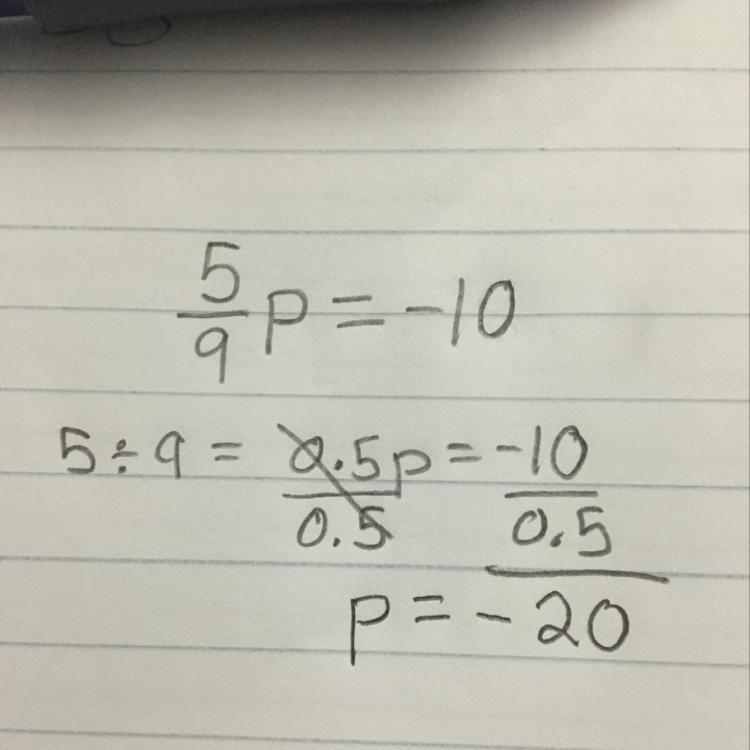 5/9 p = -10
5 ÷ 9 = 0.5p/0.5 = -10/0.5
p = -20